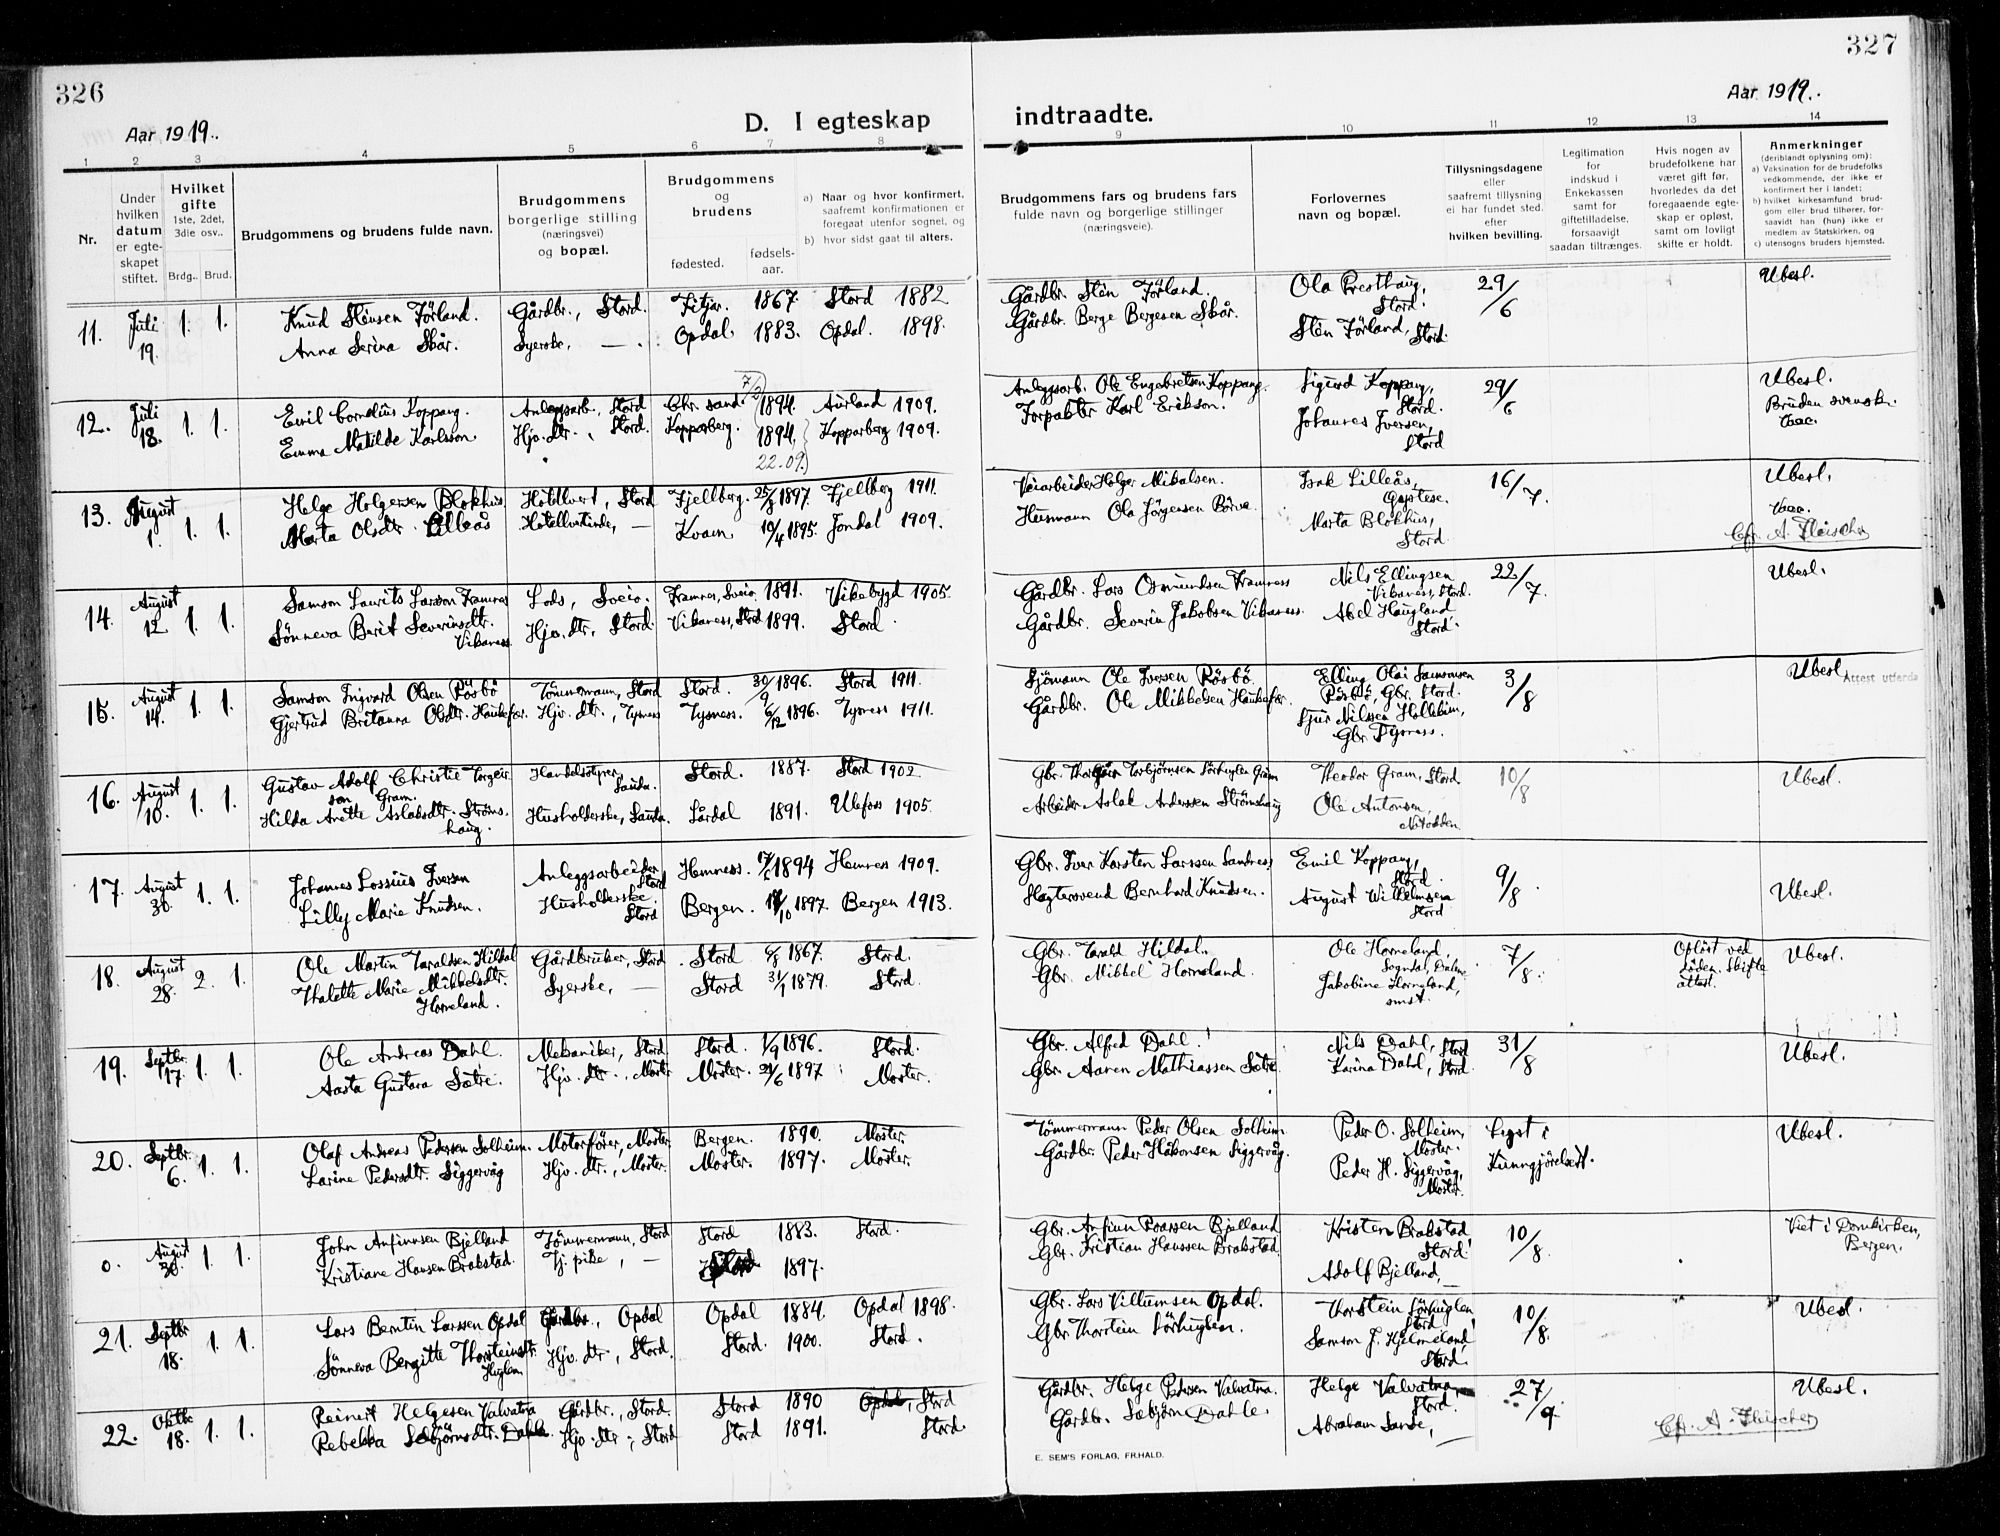 326
Aar 1919.
D. I egteskap
1 2 3 4 5 6 7 8
Nr.
Under hvilken datum er egteskapet stiftet.
Hvilket gifte 1ste, 2det, 3die osv..
Brdg.. Brud.
Brudgommens og brudens fulde navn.
Brudgommens borgerlige stilling (næringsvei) og bopæl.
Brudgommens og brudens
fødested.
fødsels-aar.
a) Naar og hvor konfirmert, saafremt konfirmationen er foregaat utenfor sognet, og
b) hvor sidst gaat til alters.
11. Juli 19. 1. 1. Knud Stensen Förland. Gårdbr., Stord. Fitjar. 1867. Stord 1882
Anna Serina Skår. Syerske, — . Opdal 1883. Opdal. 1898.
12. Juli 18. 1. 1. Emil Cornelius Koppang. Anleggsarb., Stord Chr. sand. 7/2 1894. Aurland 1909.
Emma Matilde Karlsson. Hjv. dtr., Stord. Kopparberg. 1894. Kopparberg 1909.
22.09.
13. August 1. 1. 1. Helge Holgersen Blokhus. Hotellvert, Stord Fjellberg. 1897. Fjellberg 1911.
Marta Olsdtr. Lilleås Hotellvertinde, — Kvam. 19/4 1895. Jondal 1909.
14. August 12. 1. 1. Samson Laurits Larsen Framnes Lods, Sveio. Framnes, Sveio. 1891. Vikebygd 1905.
Sönneva Berit Severinsdtr. Vikaness. Hjv. dtr., Stord. Vikaness, Stord 1899. Stord.
15. August 14. 1. 1. Samson Ingvard Olsen Rösbö Tömmermann, Stord Stord. 30/9 1896. Stord 1911.
Gjertrud Britanna Olsdtr. Haukefær. Hjv. dtr., Tysness Tysness. 6/12 1896. Tysness 1911.
16. August 10. 1. 1. Gustav Adolf Christie Torgeirson Gram. Handelsstyrer, Sauda. Stord. 1887. Stord 1902.
Hilda Anette Aslaksdtr. Strömshaug. Husholderske, Sauda. Lårdal 1891. Ulefoss 1905.
17. August 30. 1. 1. Johannes Lossius Iversen Anleggsarbeider Stord Hemness. 1894 Hemness 1909.
Lilly Marie Knudsen. Husholderske. Stord Bergen. 1897. Bergen 1913.
18. August 28. 2. 1. Ole Martin Taraldsen Hildal Gårdbruker, Stord Stord 1867. Stord.
Thalette Marie Mikkelsdtr. Horneland. Syerske, — Stord 31/1 1879. Stord.
19. Septbr. 17. 1. 1. Ole Andreas Dahl. Mekaniker, Stord. Stord. 1/9 1896. Stord.
Aasta Gustava Sætre. Hjv. dtr., Moster Moster. 1897 Moster.
20. Septbr. 6. 1. 1. Olaf Andreas Pedersen Solheim. Motorförer, Moster. Bergen. 1890. Moster.
Larine Pedersdtr. Siggervåg Hjv. dtr., Moster. Moster. 1897. Moster.
o. August 30. 1. 1. John Anfinnsen Bjelland Tömmermann, Stord Stord 1883. Stord.
Kristiane Hansen Brakstad. Tj. pike, — 1897.
21. Septbr 18. 1. 1. Lars Berntin Larssen Opdal Gårdbr., Opdal Opdal 1884. Opdal 1898.
Sönneva Bergitte Thorsteinsdtr. Huglen Hjv. dtr, Stord. Stord. 1900. Stord.
22. Oktbr 18. 1. 1. Reinert Helgesen Valvatna Gårdbr., Stord. Stord 1890 Opdal, Stord
Rebekka Sæbjörnsdtr. Dahle. Hjv. dtr., Stord Stord 1891. Stord.
327
Aar 1919.
indtraadte.
9 10 11 12 13 14
Brudgommens fars og brudens fars fulde navn og borgerlige stillinger (næringsveie).
Forlovernes navn og bopæl.
Tillysningsdagene eller saafremt tillysning ei har fundet sted. efter hvilken bevilling.
Legitimation for indskud i Enkekassen samt for giftetilladelse, forsaavidt saadan tiltrænges.
Hvis nogen av brudefolkene har været gift før, hvorledes da det foregaaende egteskap er opløst, samt om lovligt skifte er holdt.
Anmerkninger (deriblandt oplysning om):
a) Vaksination for de brudefolks vedkommende, der ikke er konfirmert her i landet;
b) hvilket kirkesamfund brudgom eller brud tilhører, forsaavidt han (hun) ikke er medlem av Statskirken, og
c) utensogns bruders hjemsted.
Gårdbr. Sten Förland. Ola Presthaug, Stord. 29/6 Ubesl.
Gårdbr. Berge Bergesen Skår. Sten Förland, Stord.
Anleggsarb. Ole Engebretsen Koppang. Sigurd Koppang, Stord. 29/6 Ubesl.
Forpakter Karl Erikson. Johannes Iversen, Stord Bruden svensk. Vacc.
Veiarbeider Holger Mikalsen. Isak Lilleås, 16/7. Ubesl.
Husmann Ola Jörgensen Börve. Marta Blokhus, Stord. Vacc.
Cfr. A. Fleischer
Gårdbr. Lars Osmundsen Framness Nils Ellingsen Vikaness, Stord. 22/7. Ubesl.
Gårdbr. Severin Jakobsen Vikaness. Abel Haugland Stord.
Sjömann Ole Iversen Rösbö. Elling Olai Samsonsen Rösbö, Gbr. Stord. 3/8 Ubesl.
Attest utferda
Gårdbr. Ole Mikkelsen Haukefær. Sjur Nilssen Holleheim, Gbr. Tysness.
Gbr. Thorgeir Torbjörnsen Sörhuglen Gram Theodor Gram, Stord 10/8 Ubesl.
Arbeider Aslak Anderssen Strömshaug Ole Antonsen, Notodden.
Gbr. Iver Karsten Larssen Sandness Emil Koppang, Stord. 9/8. Ubesl.
Slagtersvend Bernhard Knudsen. August Wilhelmsen Stord
Gbr. Tarald Hildal. Ole Horneland, 7/8. Oplöst ved döden. Skifte attest. Ubesl.
Gbr. Mikkel Horneland. Jakobine Horneland, smst.
Gbr. Alfred Dahl. Nils Dahl, Stord 31/8 Ubesl.
Gbr. Aaren Mathiassen Sætre. Karina Dahl, Stord.
Tömmermann Peder Olsen Solheim. Peder O. Solheim, Moster. Lyst i Kunngjörelsest. Ubesl.
Gårdbr. Peder Håkonsen Siggervåg. Peder H. Siggervåg, Moster.
Gbr. Anfinn Ivarssen Bjelland Kristen Brakstad, Stord. 10/8. Viet i Domkirken, Bergen.
Gbr. Kristian Hanssen Brakstad. Adolf Bjelland, —
Gbr. Lars Villumsen Opdal. Thorstein Sörhuglen, Stord 10/8. Ubesl.
Gbr. Thorstein Sörhuglen. Samson J. Hjelmeland, Stord.
Gårdbr. Helge Pedersen Valvatna. Helge Valvatna, Stord. 27/9. Ubesl.
Gårdbr. Sæbjörn Dahle. Abraham Sande, —
Cfr. A. Fleischer
E. SEM'S FORLAG, FR.HALD.